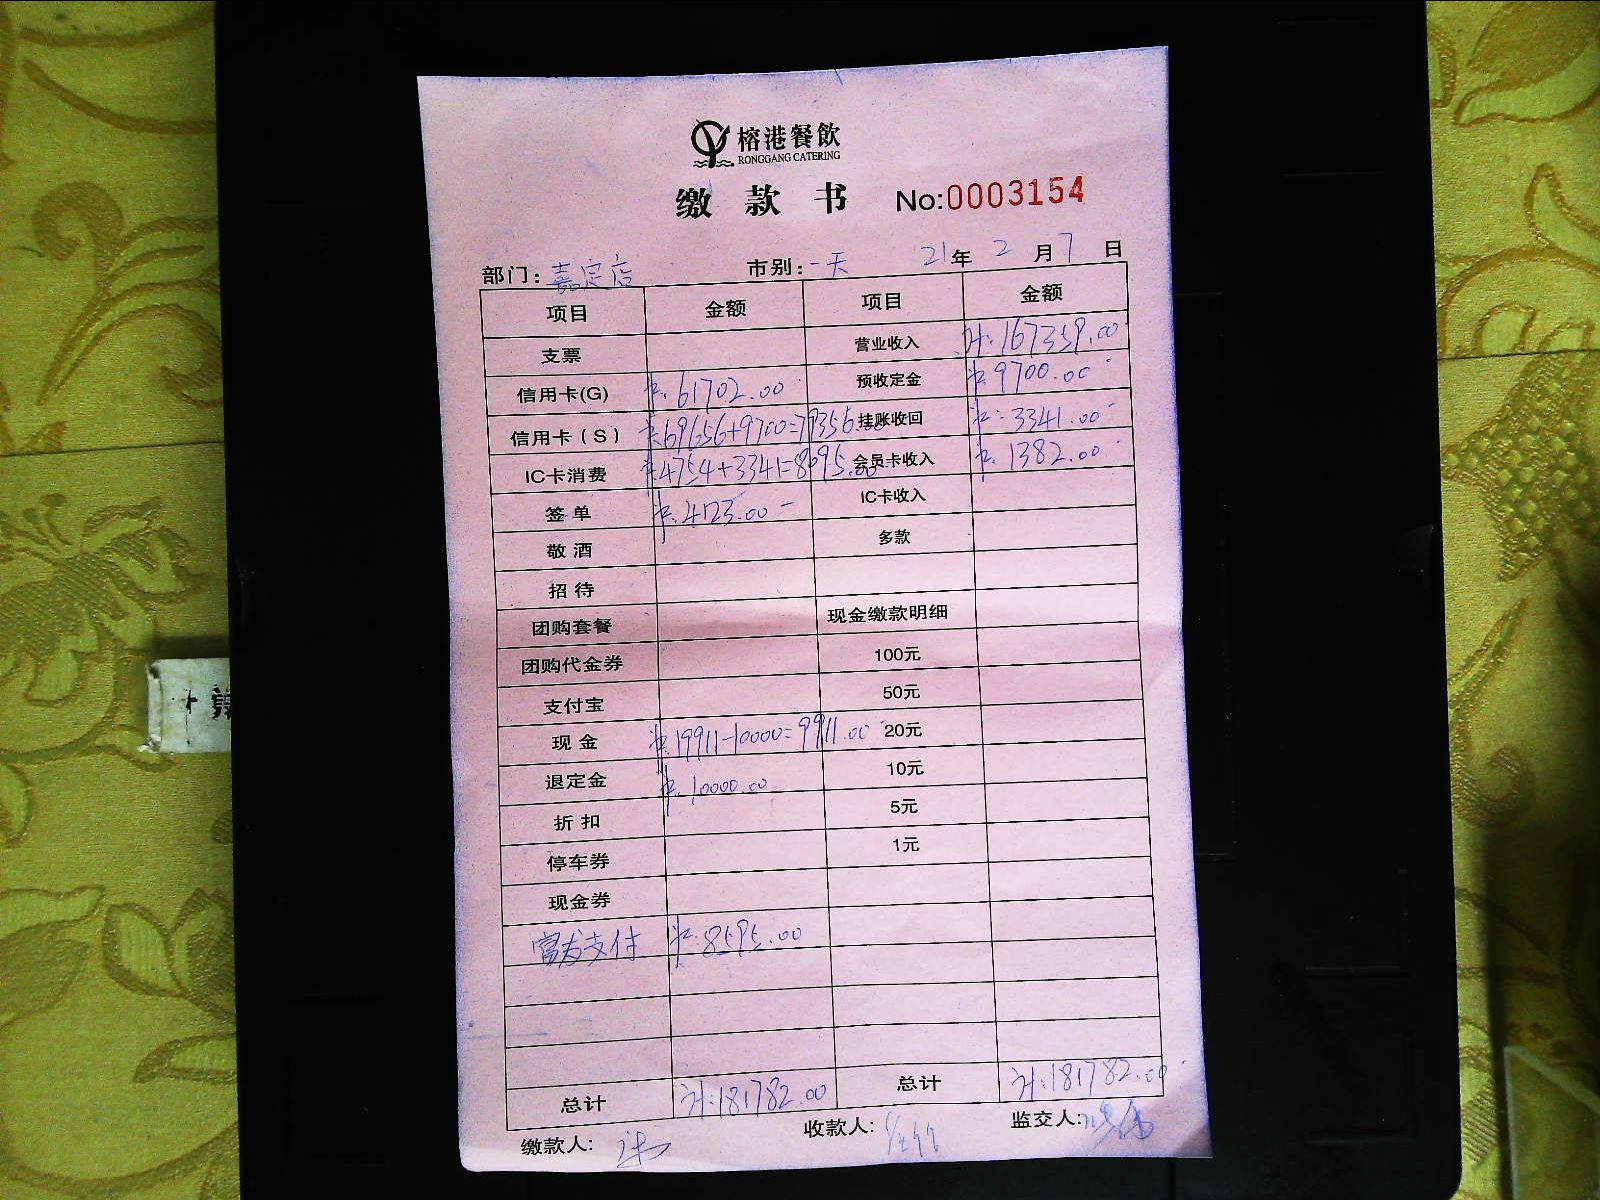 榕港餐飲
RONGGANG CATERING
缴款书 No:0003154
部门:嘉定店 市别:一天 21年2月7日
项目 金额 项目 金额
支票 营业收入 计:167359.00
信用卡(G) 61702.00 预收定金 9700.00
信用卡(S) 69656+9700=79356.00 挂账收回 3341.00
IC卡消费 4754+3341=8095.00 会员卡收入 1382.00
签单 4123.00 IC卡收入
敬酒 多款
招待
团购套餐 现金缴款明细
团购代金券 100元
支付宝 50元
现金 19911-10000=9911.00 20元
退定金 10000.00 10元
折扣 5元
停车券 1元
现金券
富友支付 8595.00
总计 计:181782.00 总计 计:181782.00
缴款人: 收款人: 监交人: